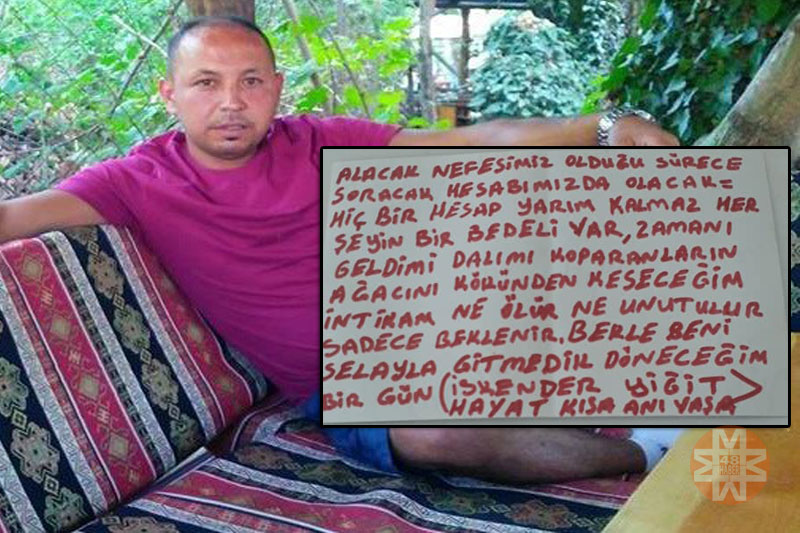 ALACAK NEFESİMİZ OLDUĞU SÜRECE
SORACAK HESABIMIZDA OLACAK=
HİÇ BİR HESAP YARIM KALMAZ HER
ŞEYİN BİR BEDELİ VAR, ZAMANI
GELDİMİ DALIMI KOPARANLARIN
AĞACINI KÖKÜNDEN KESECEĞİM
İNTİKAM NE ÖLÜR NE UNUTULUR
SADECE BEKLENİR. BEKLE BENİ
SELAYLA GİTMEDİK DÖNECEĞİM
BİR GÜN (İSKENDER YİĞİT >
HAYAT KISA ANI YAŞA